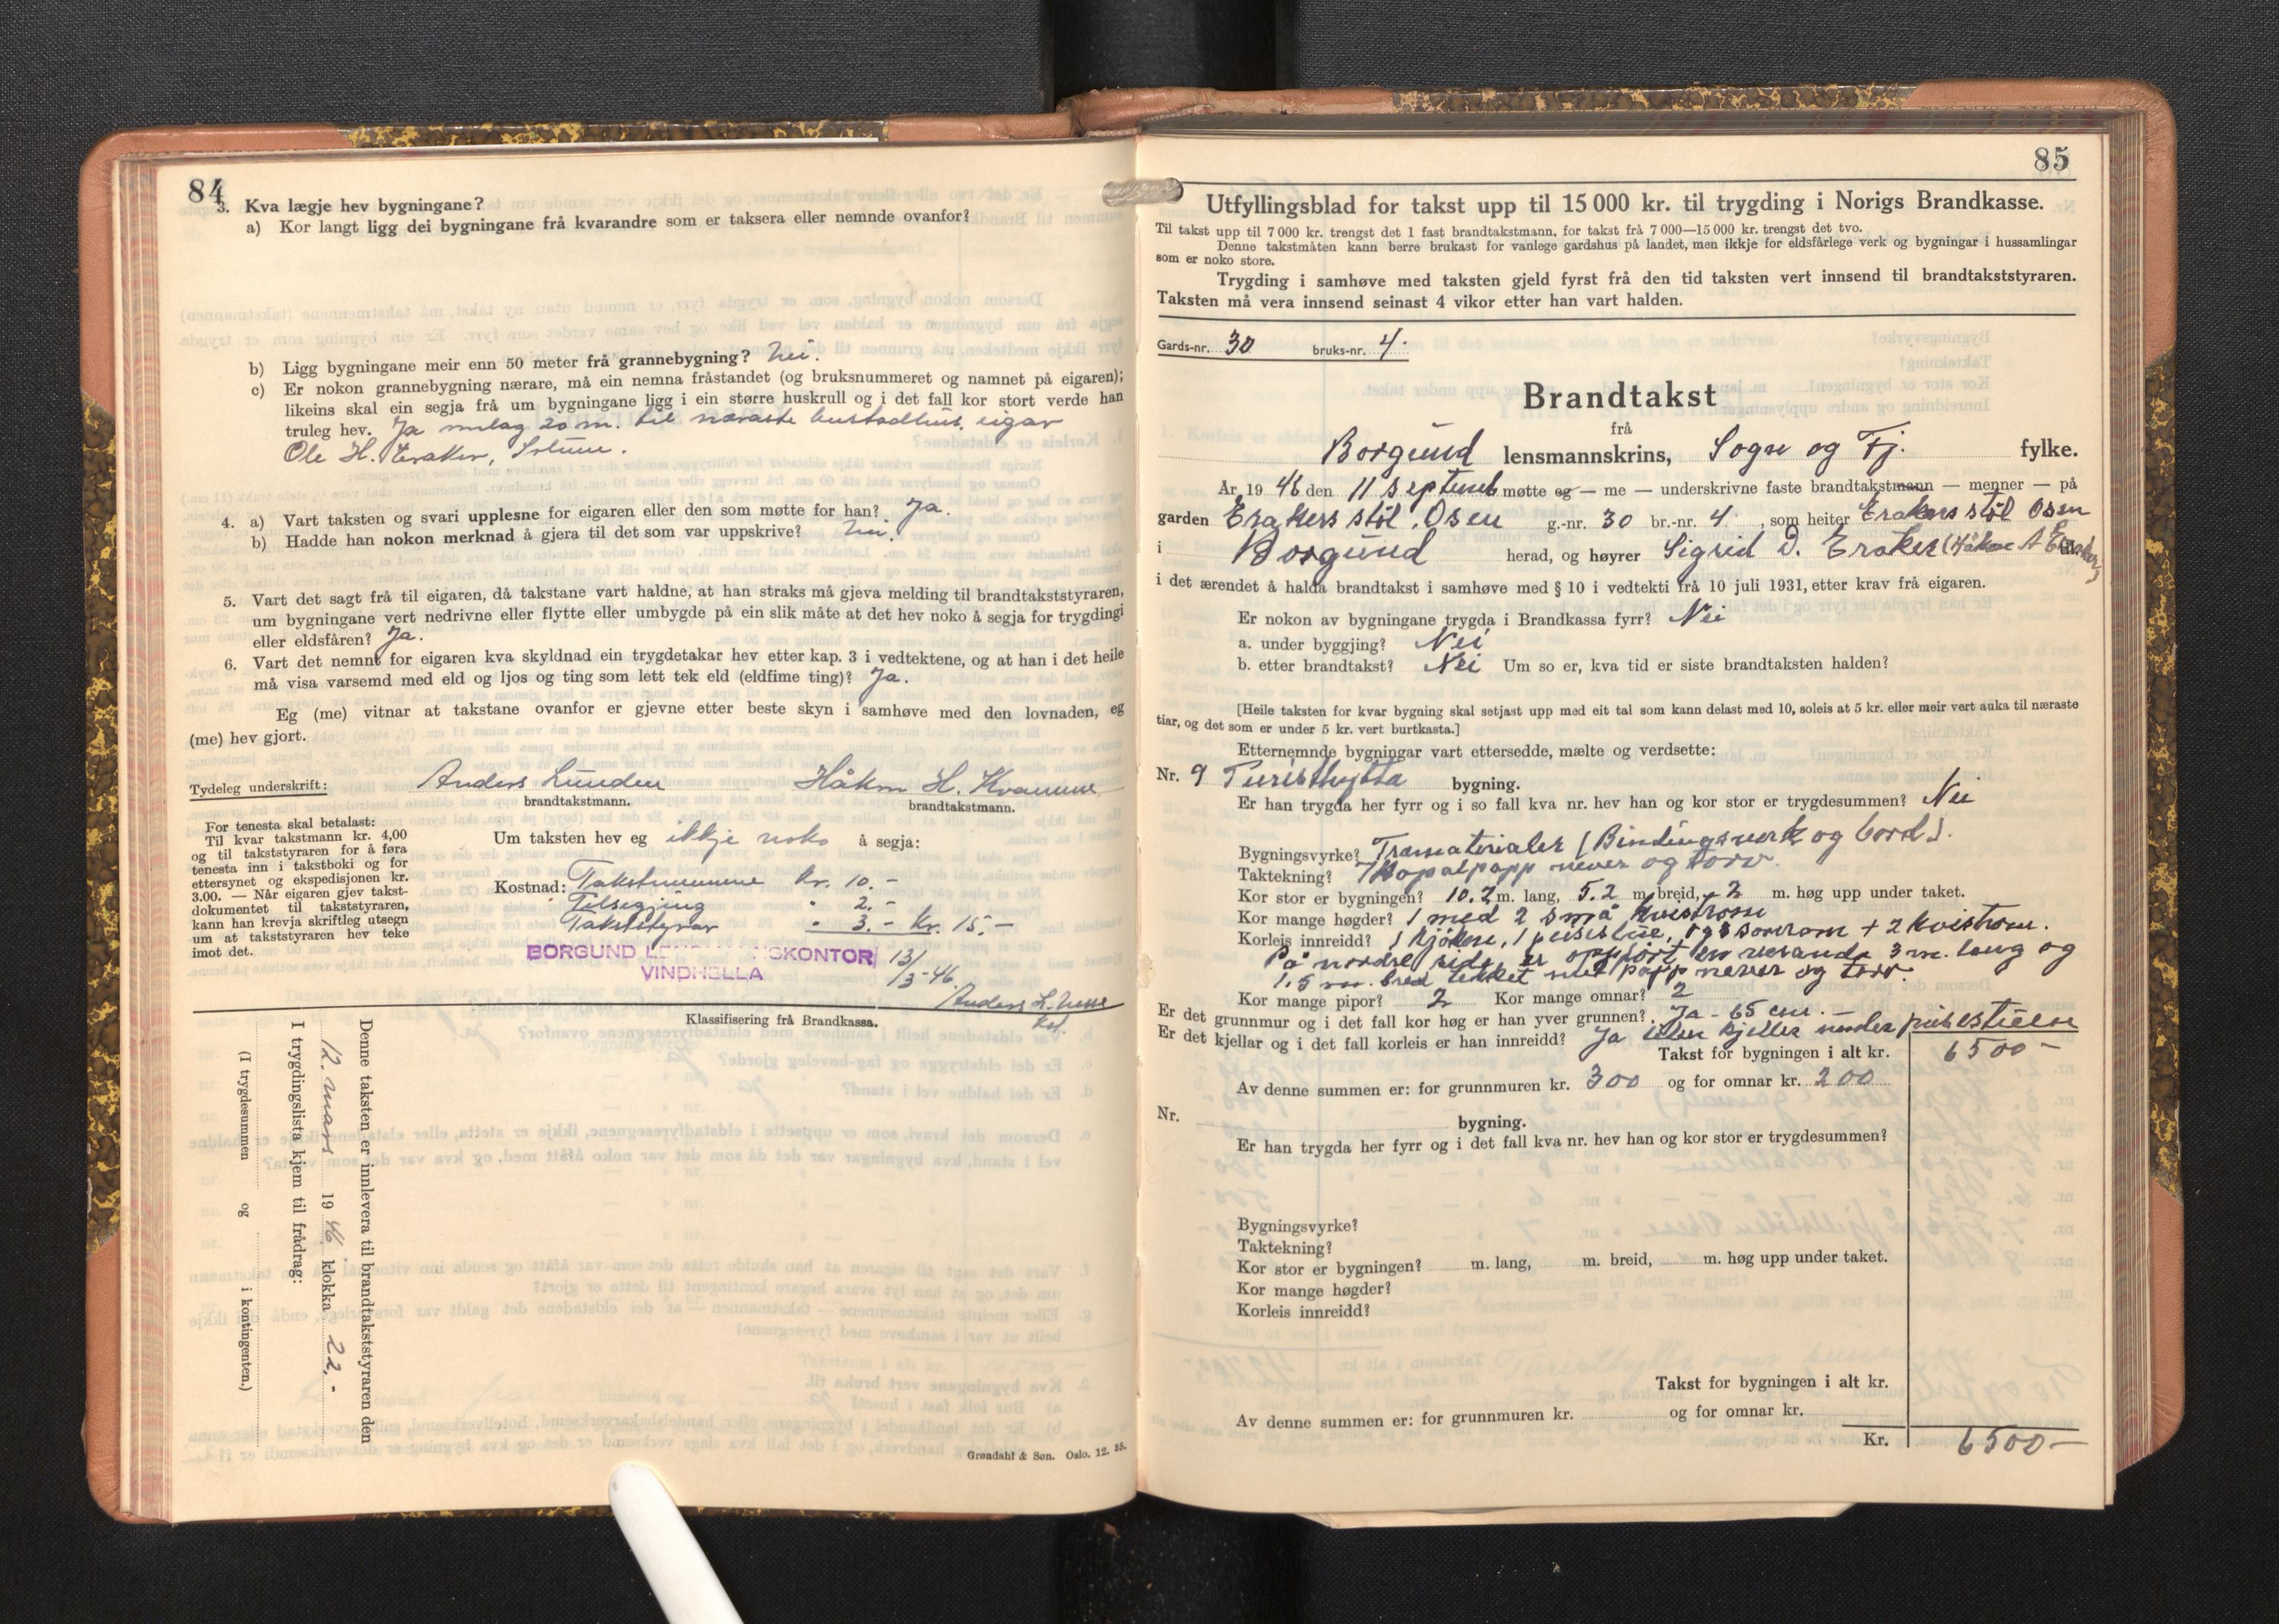 84
3. Kva lægje hev bygningane?
a) Kor langt ligg dei bygningane frå kvarandre som er taksera eller nemnde ovanfor?
b) Ligg bygningane meir enn 50 meter frå grannebygning? Nei.
c) Er nokon grannebygning nærare, må ein nemna fråstandet (og bruksnummeret og namnet på eigaren);
likeins skal ein segja frå um bygningane ligg i ein større huskrull og i det fall kor stort verde han
truleg hev. Ja umlag 20 m. til næraste bustadhus, eigar
Ole H. Eraker,
4. a) Vart taksten og svari upplesne for eigaren eller den som møtte for han? Ja.
b) Hadde han nokon merknad å gjera til det som var uppskrive? Nei.
5. Vart det sagt frå til eigaren, då takstane vart haldne, at han straks må gjeva melding til brandtakststyraren,
um bygningane vert nedrivne eller flytte eller umbygde på ein slik måte at det hev noko å segja for trygdingi
eller eldsfåren? Ja.
6. Vart det nemnt for eigaren kva skyldnad ein trygdetakar hev etter kap. 3 i vedtektene, og at han i det heile
må visa varsemd med eld og ljos og ting som lett tek eld (eldfime ting)? Ja.
Eg (me) vitnar at takstane ovanfor er gjevne etter beste skyn i samhøve med den lovnaden, eg
(me) hev gjort.
Tydeleg underskrift: Anders Lunden Håkon H. Kvamme
brandtakstmann. brandtakstmann.
For tenesta skal betalast:
Til kvar takstmann kr. 4,00
og til takststyraren for å føra
tenesta inn i takstboki og for
ettersynet og ekspedisjonen kr.
3.00. — Når eigaren gjev takst-
dokumentet til takststyraren,
kann han krevja skriftleg utsegn
um at takststyraren hev teke
imot det.
Um taksten hev eg ikkje noko å segja:
Kostnad: Takstmennene kr. 10.-
Tilsegjing " 2.-
Takststyrar " 3.- Kr. 15.-
BORGUND L SKONTOR
VINDHELLA
13/3-46.
Anders L.
Klassifisering frå Brandkassa.
Denne taksten er innlevera til brandtakststyraren den
12. mars 1946 klokka 22.-
I trygdingslista kjem til frådrag:
(I trygdesummen og i kontingenten.)
Grøndahl & Søn. Oslo. 12. 35.
85
Utfyllingsblad for takst upp til 15 000 kr. til trygding i Norigs Brandkasse.
Til takst upp til 7 000 kr. trengst det 1 fast brandtakstmann, for takst frå 7 000—15 000 kr. trengst det tvo.
Denne takstmåten kann berre brukast for vanlege gardshus på landet, men ikkje for eldsfårlege verk og bygningar i hussamlingar
som er noko store.
Trygding i samhøve med taksten gjeld fyrst frå den tid taksten vert innsend til brandtakststyraren.
Taksten må vera innsend seinast 4 vikor etter han vart halden.
Gards-nr. 30 bruks-nr. 4.
Brandtakst
frå
Borgund lensmannskrins, Sogn og Fj. fylke.
År 1946 den 11 septemb møtte eg — me — underskrivne faste brandtakstmann — menner — på
garden Erakers støl, Osen g.-nr. 30 br.-nr. 4, som heiter Erakers støl Osen
i Borgund herad, og høyrer Sigrid D. Eraker (Håkon A Eraker) til
i det ærendet å halda brandtakst i samhøve med § 10 i vedtekti frå 10 juli 1931, etter krav frå eigaren.
Er nokon av bygningane trygda i Brandkassa fyrr? Nei
a. under byggjing? Nei
b. etter brandtakst? Nei Um so er, kva tid er siste brandtaksten halden?
[Heile taksten for kvar bygning skal setjast upp med eit tal som kann delast med 10, soleis at 5 kr. eller meir vert auka til næraste
tiar, og det som er under 5 kr. vert burtkasta.]
Etternemnde bygningar vart ettersedde, mælte og verdsette:
Nr. 9 Turisthytta bygning.
Er han trygda her fyrr og i so fall kva nr. hev han og kor stor er trygdesummen? Nei
Bygningsvyrke? Træmaterialer (Bindingsverk og bord).
Taktekning? papp never og torv.
Kor stor er bygningen? 10.2 m. lang, 5.2 m. breid, 2 m. høg upp under taket.
Kor mange høgder? 1 med 2 små kvistrom
Korleis innreidd? 1 kjøken, 1 peisestue, og 3 soverom + 2 kvistrom.
På nordre side er oppført en veranda 3 m. lang og
1,5 m. bred tekket med papp never og torv.
Kor mange pipor? 2 Kor mange omnar? 2
Er det grunnmur og i det fall kor høg er han yver grunnen? Ja - 65 cm. -
Er det kjellar og i det fall korleis er han innreidd? Ja liten kjeller under peisestuen
Takst for bygningen i alt kr. 6500-
Av denne summen er: for grunnmuren kr. 300 og for omnar kr. 200
Nr. bygning.
Er han trygda her fyrr og i det fall kva nr. hev han og kor stor er trygdesummen?
Bygningsvyrke?
Taktekning?
Kor stor er bygningen? m. lang, m. breid, m. høg upp under taket.
Kor mange høgder?
Korleis innreidd?
Takst for bygningen i alt kr.
Av denne summen er: for grunnmuren kr. og for omnar kr.
Kr. 6500-